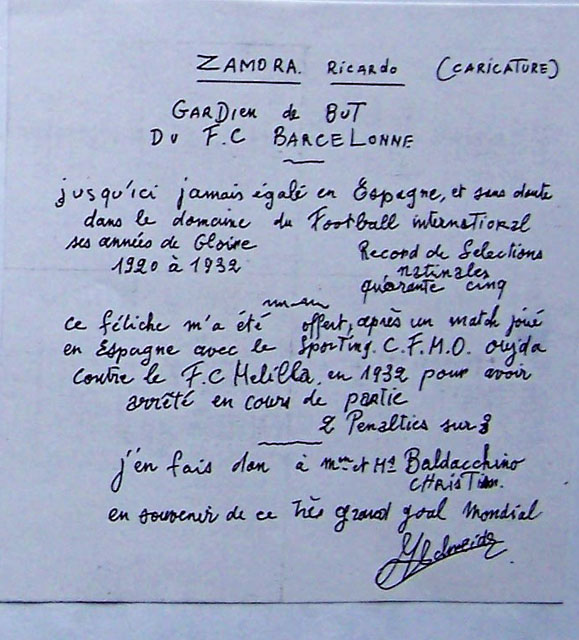 ZAMORA. Ricardo (CARICATURE)
GARDien de BUT
DU F.C BARCELONNE
jusqu'ici jamais égalé en Espagne, et sans doute
dans le domaine du Football international
ses années de Gloire
1920 à 1932
Record de Selections
natinales
quarante cinq
ce fétiche m'a été offert, après un match joué
en Espagne avec le Sporting. C.F.M.O. oujda
contre le F.C Melilla. en 1932 pour avoir
arrêté en cours de partie
2 Penalties sur 3
j'en fais don à mme et Mr Baldacchino
CHRISTian.
en souvenir de ce très grand goal Mondial